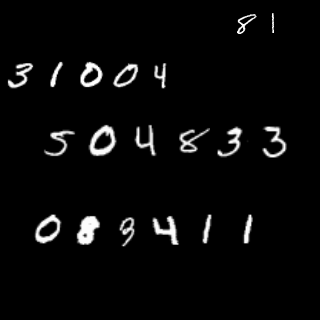 81
31004
504833
083411